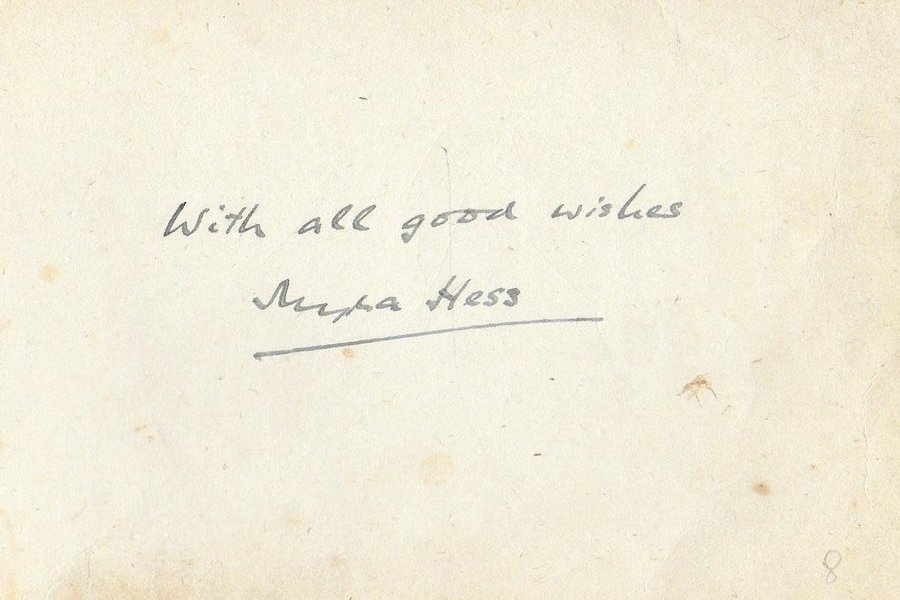 With all good wishes
Myra Hess
8